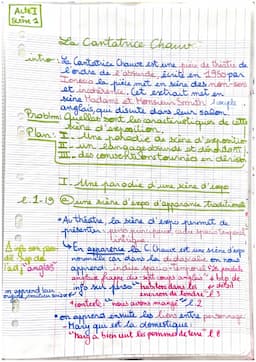 Acte I
Scène 1
La Cantatrice Chauve
intro: La Cantatrice Chauve est une pièce de théâtre de
l'ordre de l'absurde, écrite en 1950 par
Ionesco la pièce met en scène des non-sens
et incohérence. Cet extrait met en
scène Madame et Monsieur Smith couple
anglais, qui discute dans leur salon
Problem: Quelles sont les caractéristiques de cette
scène d'exposition.
Plan: I - Une parodie de scène d'exposition
II - un langage absurde et
III - des conversations tournées en dérision
I - Une parodie d'une scène d'expo
l. 1-19 @ une scène d'expo d'apparence traditionnelle
• Au théâtre, la scène d'expo permet de
présenter
intrigue
↳ En apparence la C. Chauve est une scène d'expo
normale car dans la didascalie on nous
apprend: indice spatio-temporel
"anglais"
on apprend leur
info sur perso "habitons dans les
environ de Londre" l 3
• contexte: "nous avons mangé" l 2
• on apprend ensuite les liens entre personnage
- Mary qui est la domestique:
"Mary a bien cuit les pommes de terre" l 8